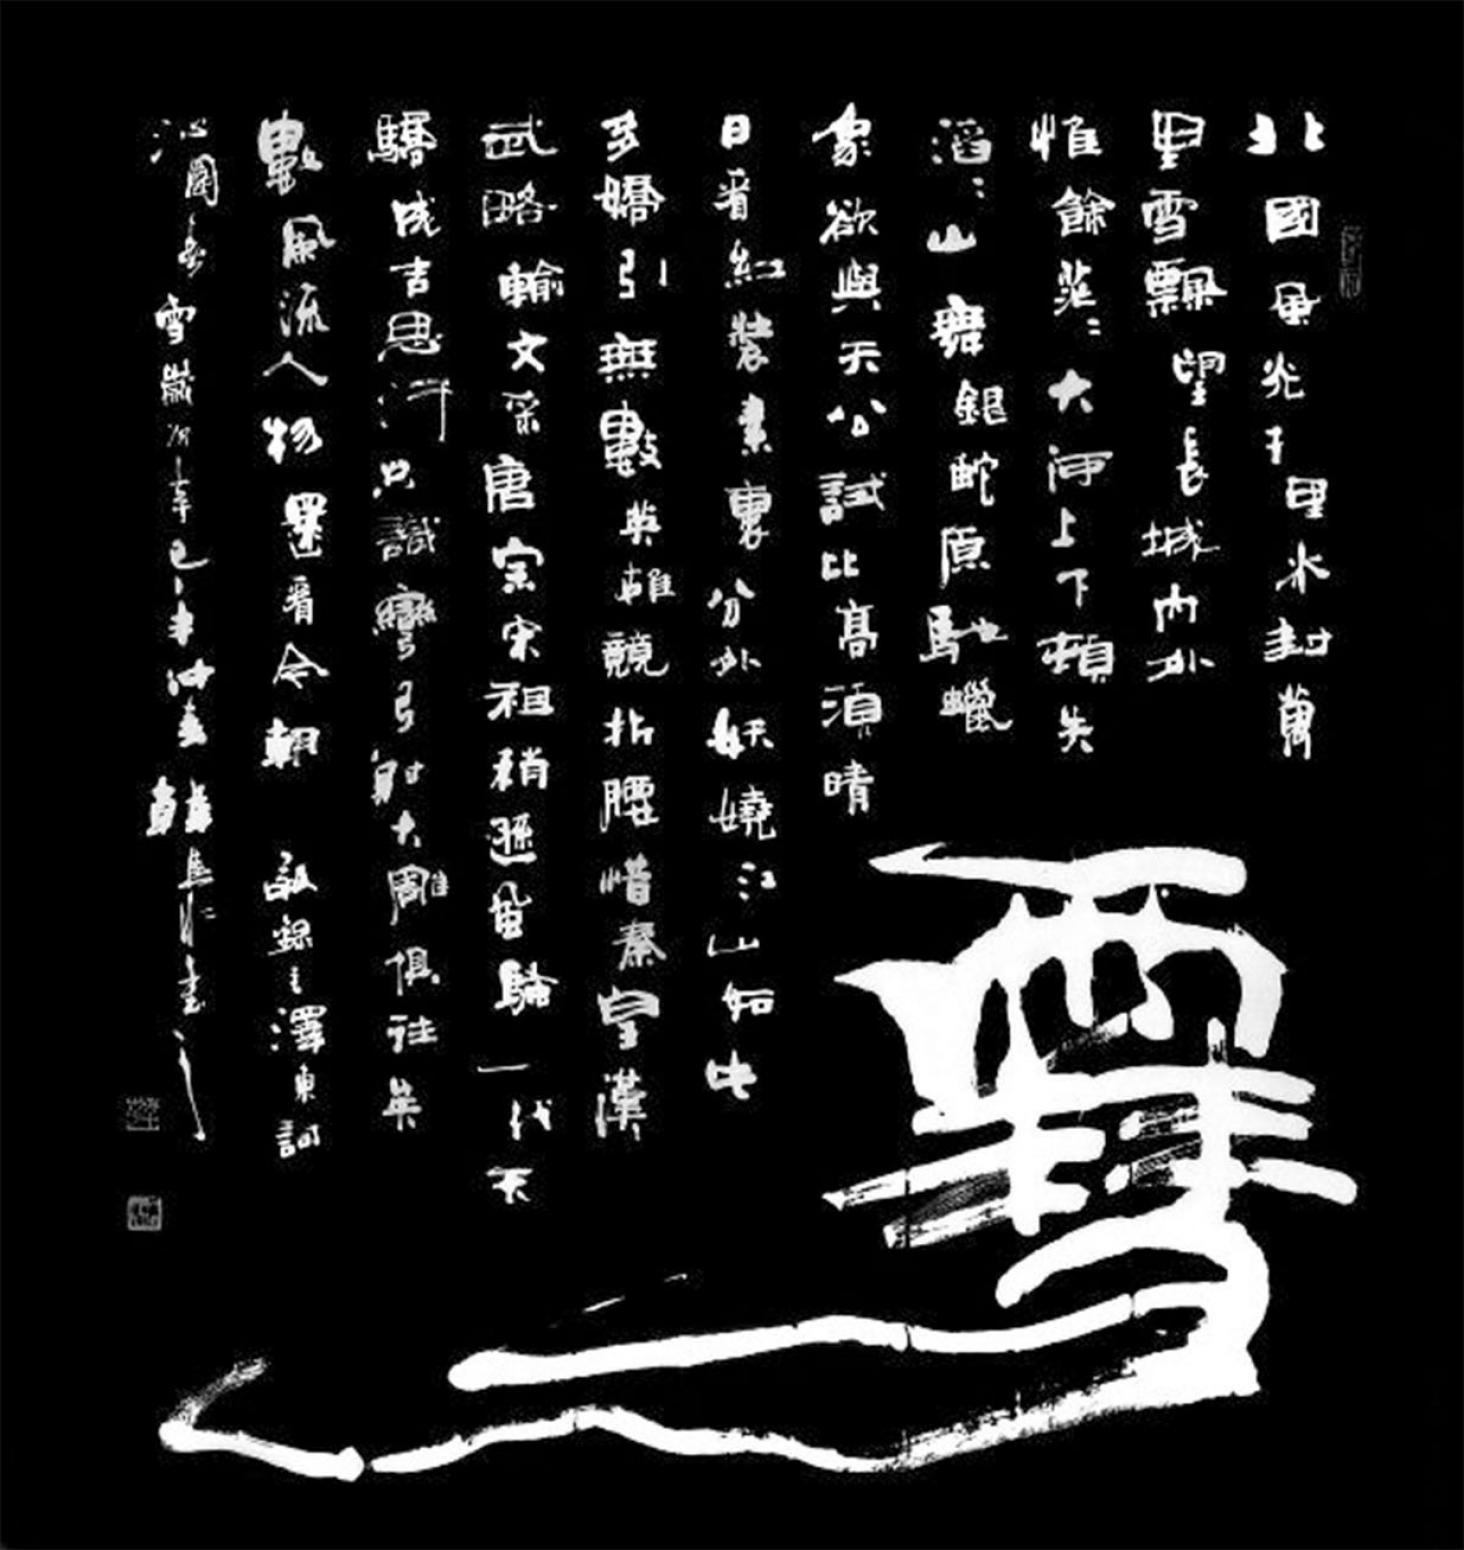 北國風光千里冰封萬
里雪飄望長城内外
惟餘茫〻大河上下頓失
滔〻山舞銀蛇原馳蠟
象欲與天公試比高須晴
日看紅裝素裹分外妖嬈江山如此
多嬌引無數英雄競折腰惜秦皇漢
武略輸文采唐宗宋祖稍遜風騷一代天
驕成吉思汗只識彎弓射大雕俱往矣
數風流人物還看今朝 敬錄毛澤東詞
沁園春雪歲次辛巳年仲春韓書
雪